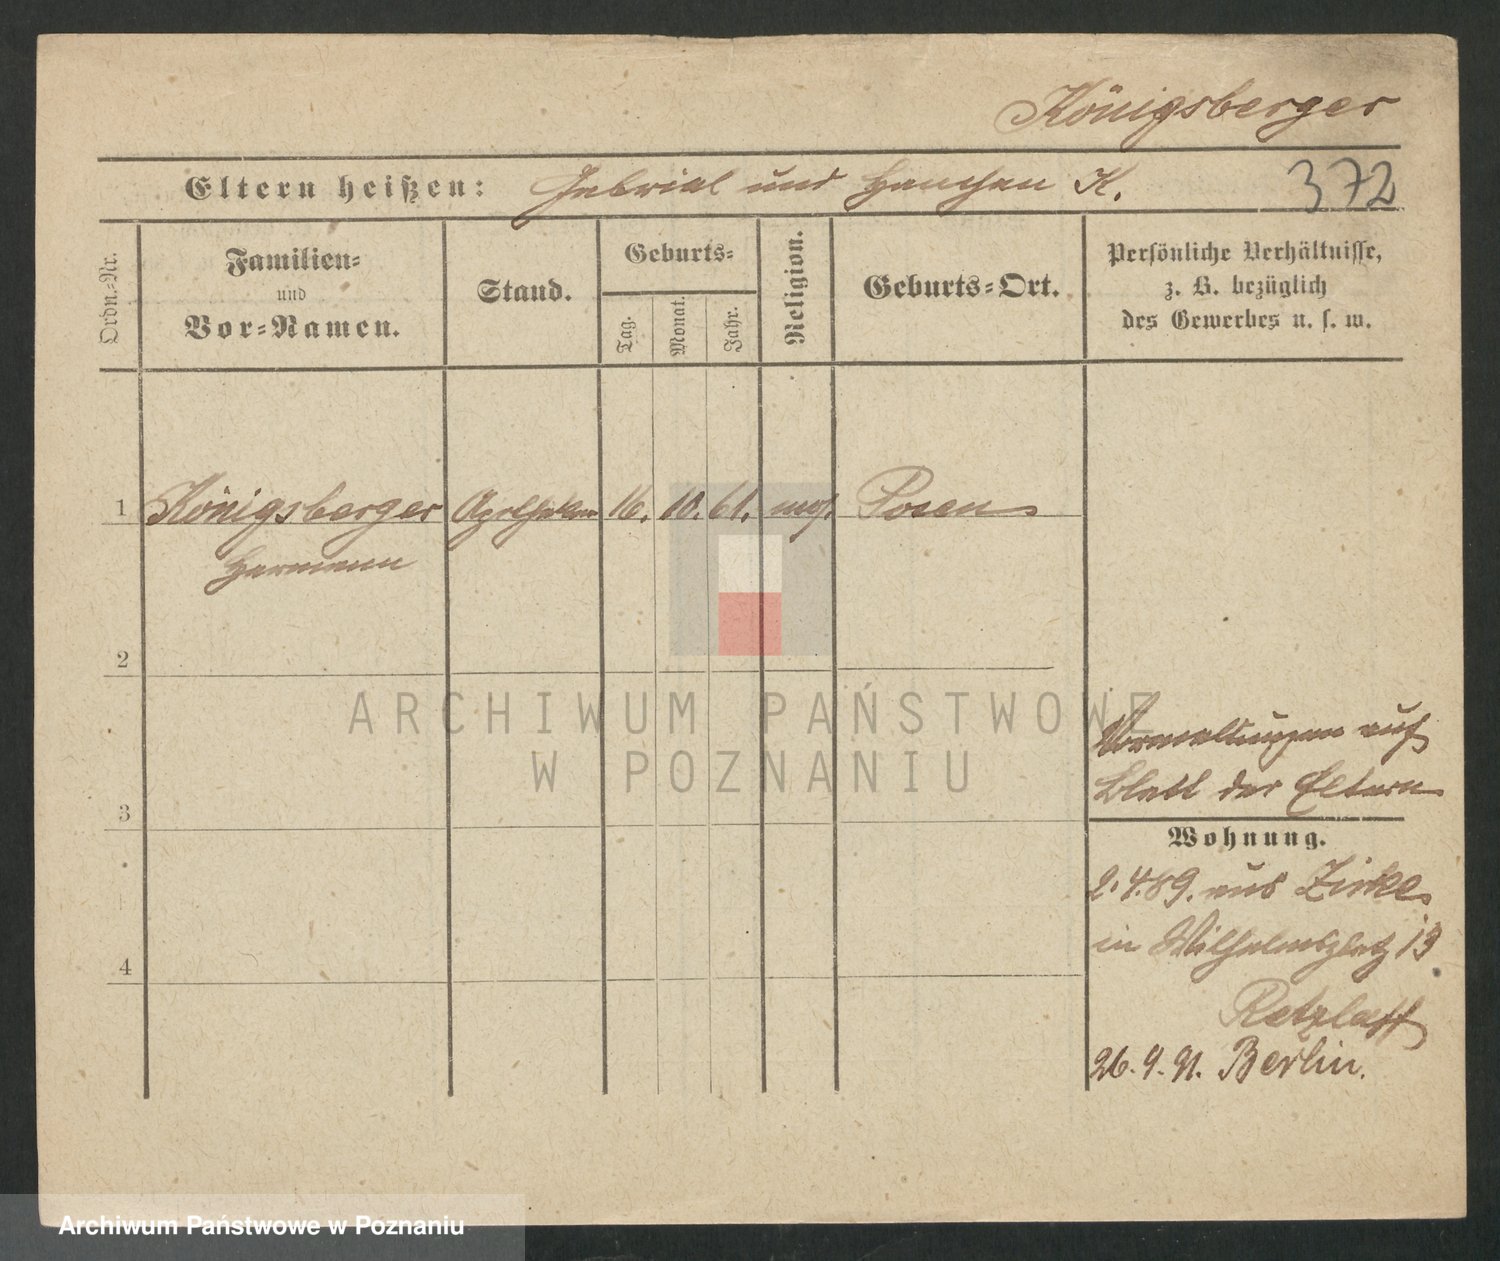 Königsberger
Eltern heißen: Gabriel und Hanchen K.
372
Ordn.-Nr.
Familien-
und
Vor-Namen.
Stand.
Geburts-
Tag.
Monat.
Jahr.
Religion.
Geburts-Ort.
Persönliche Verhältnisse,
z. B. bezüglich
des Gewerbes u. s. w.
1 Königsberger Apotheker 16. 10. 61. mos. Posen
Hermann
2
ARCHIWUM PAŃSTWOWE
W POZNANIU
3
4
Vormeldungen auf
Blatt der Eltern
Wohnung.
2.4.89. aus Zirke
in Wilhelmsplatz 13
Retzlaff
26.9.91. Berlin.
Archiwum Państwowe w Poznaniu